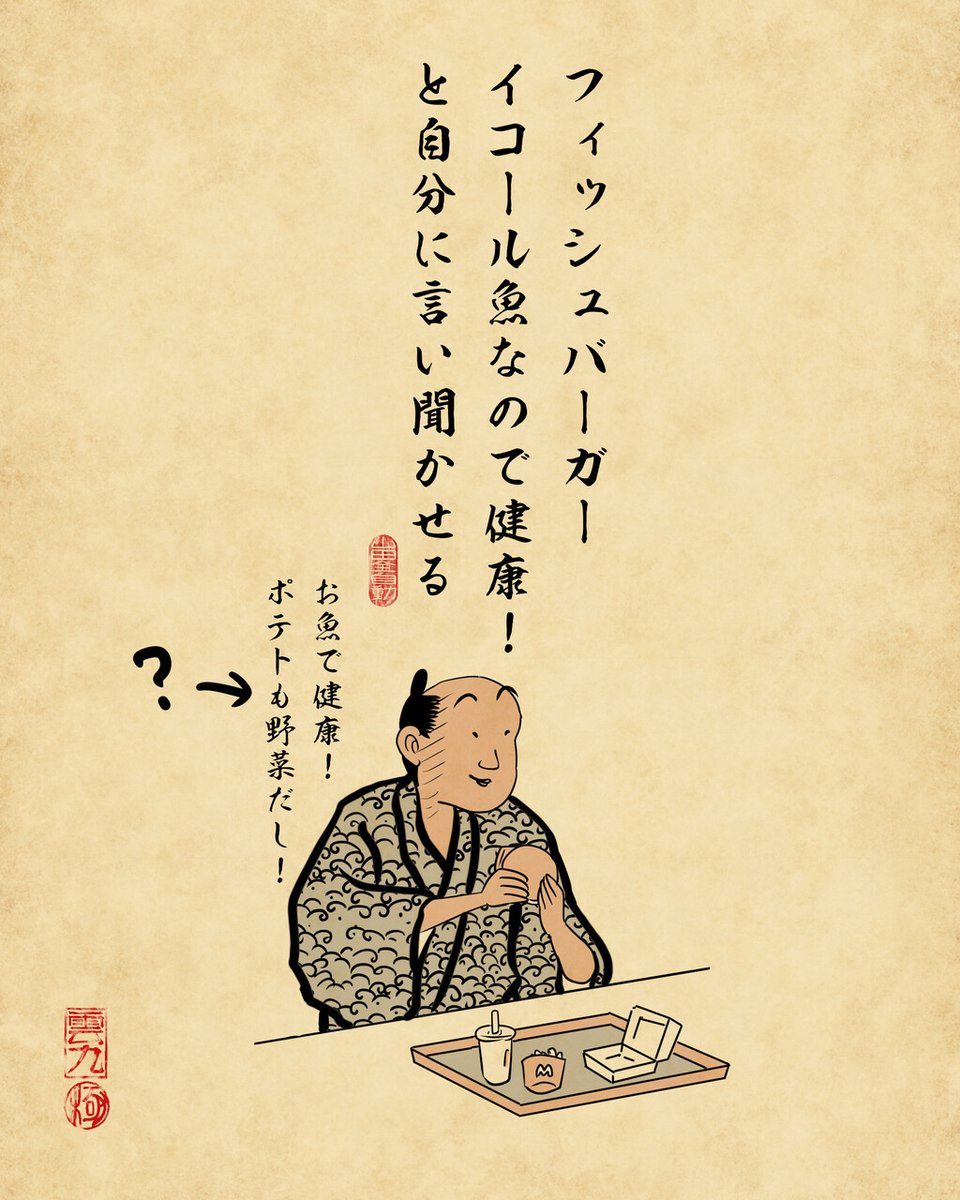 フィッシュバーガー
イコール魚なので健康！
と自分に言い聞かせる
お魚で健康！
ポテトも野菜だし！
？
M
雲九
極